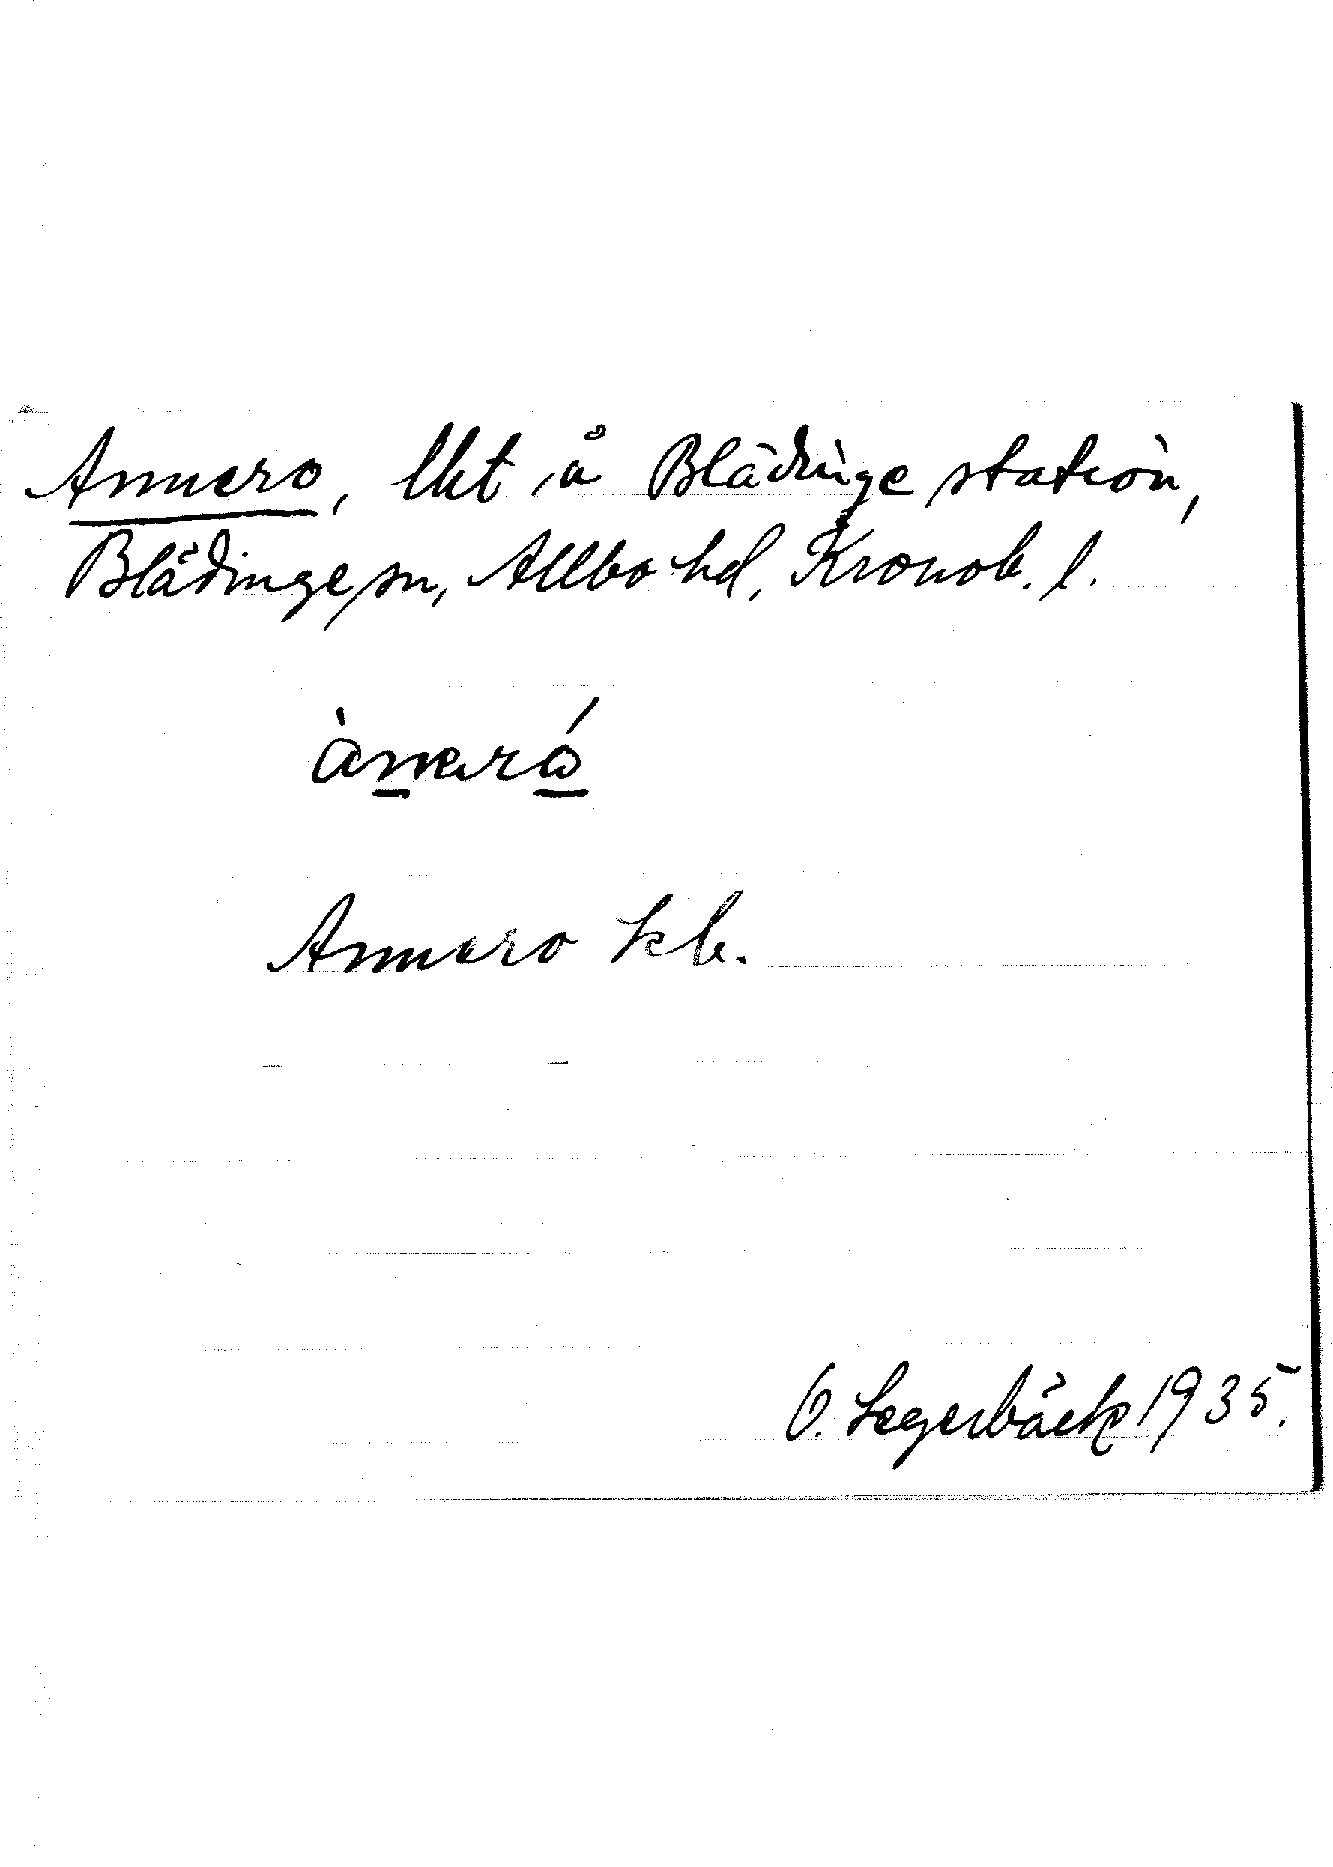 Annero, lht å Blädinge station,
Blädinge sn, Allbo hd, Kronob. l.
ànaró
Annero kb.
O. Legerbäck 1935.